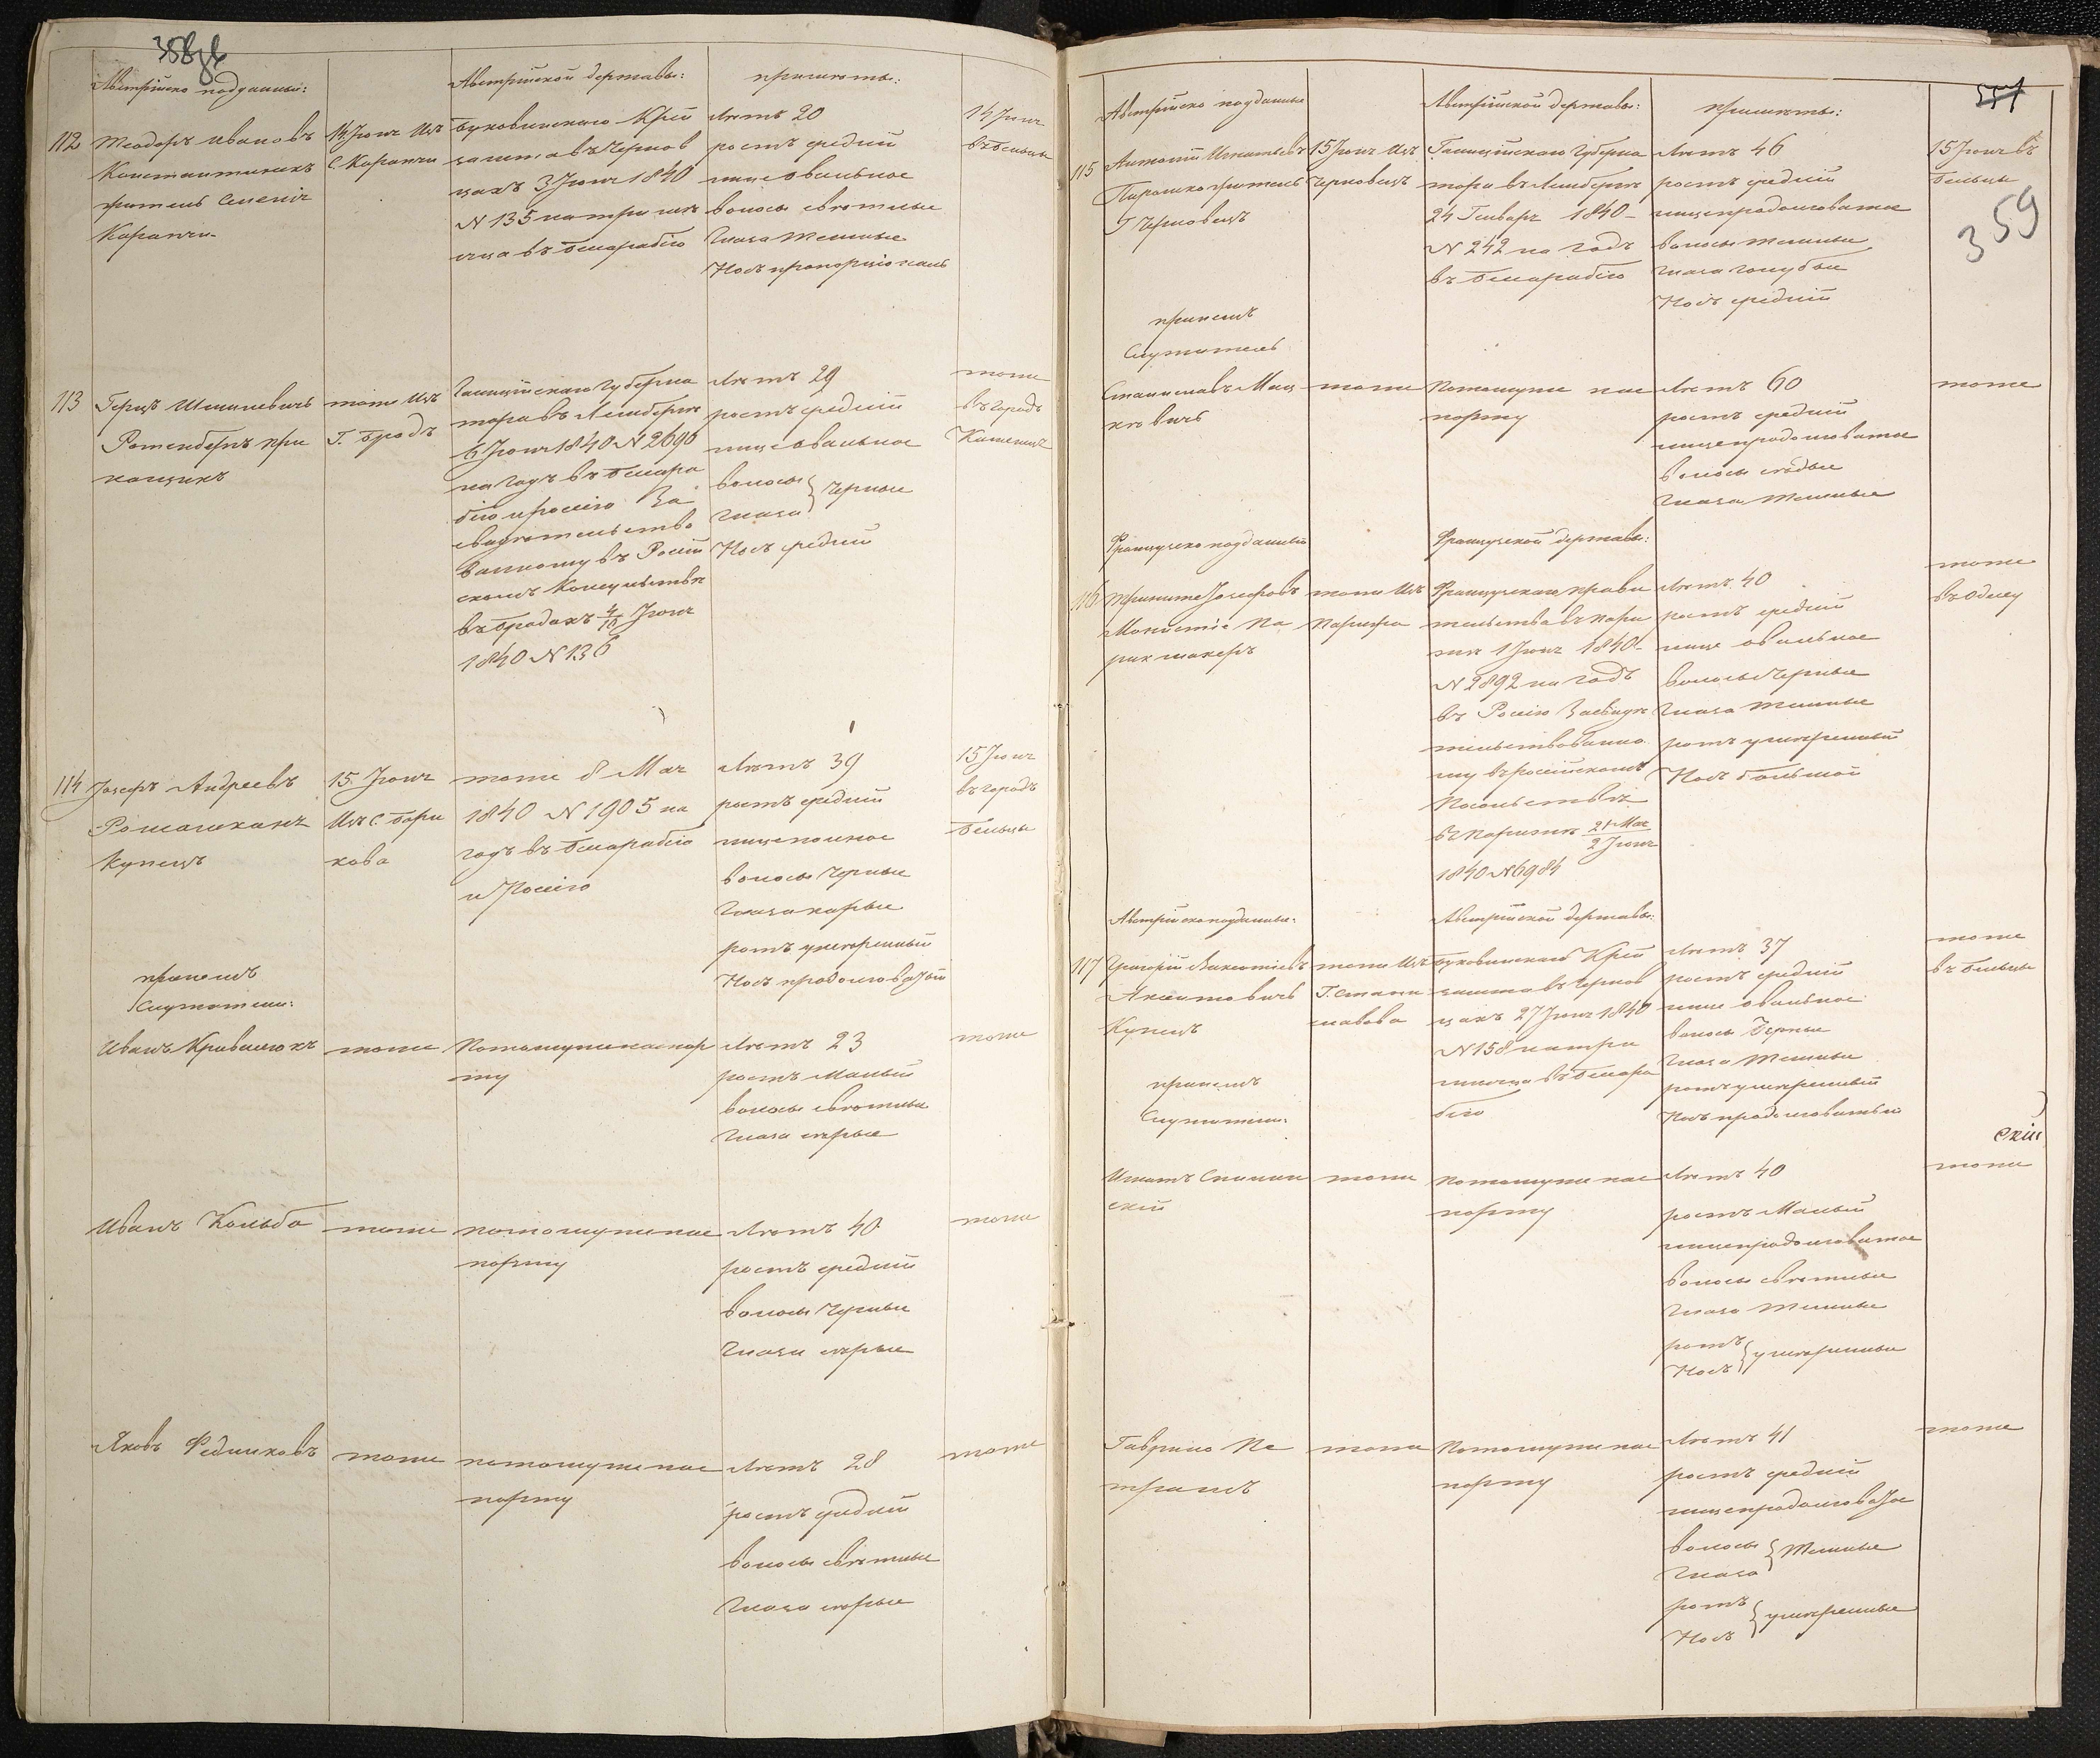 358 об
Австрійско подданный:
Австрійской державы:
приметы:
112
Теодоръ Ивановъ
Константинюкъ
житель Селенія
Карапчи
14 Іюня Изъ
С. Карапчи
Буковинскаго Крей
замта въ Чернов
цахъ 3 Іюня 1840
N 135 на три мѣ
сяца въ Бесарабію
Лѣтъ 20
ростъ средній
лице овальное
волосы свѣтлые
глаза темные
Носъ пропорціонал
14 Іюня
въ Бельцы
113
Герцъ Шмилевичъ
Ротенбергъ при
кащикъ
тоже Изъ
Г. Бродъ
Галиційскаго Губерна
тора въ Лембергѣ
6 Іюня 1840 N 2696
на годъ въ Бесара
бію и Россію За
свидѣтельство
ванному въ Россій
скомъ Консульствѣ
въ Бродахъ 4/16 Іюня
1840 N 136
Лѣтъ 29
ростъ средній
лице овальное
волосы } черные
глаза
Носъ средній
тоже
въ городъ
114
Іозефъ Андреевъ
Ромашканъ
Купецъ
15 Іюня
Изъ С. Бори
кова
тоже 8 Мая
1840 N 1905 на
годъ въ Бесарабію
и Россію
Лѣтъ 39
ростъ средній
лице полное
волосы черные
глаза карые
ротъ умѣренный
Носъ продолговатый
15 Іюня
въ городъ
Бельцы
при немъ
Служители:
Иванъ Кривансюкъ
тоже
По тому же паспор
ту
Лѣтъ 23
ростъ Малый
волосы свѣтлые
глаза сѣрые
тоже
Иванъ Кольба
тоже
по тому же пас
порту
Лѣтъ 40
ростъ средній
волосы черные
глаза сѣрые
тоже
Яковъ Федынковъ
тоже
по тому же пас
порту
Лѣтъ 28
ростъ средній
волосы свѣтлые
глаза сѣрые
тоже
359
Австрійско подданные
Австрійской державы:
приметы:
115
Антоній Игнатьевъ
житель
Г Черновецъ
15 Іюня Изъ
Черновецъ
Галиційскаго Губерна
тора въ Лембергѣ
24 Генваря 1840
N 242 на годъ
въ Бесарабію
Лѣтъ 46
ростъ средній
лице продолговатое
волосы темные
глаза голубые
Носъ средній
15 Іюня въ
Бельцы
при немъ
Служитель
Станиславъ Мац
кѣвичъ
тоже
По тому же пас
порту
Лѣтъ 60
ростъ средній
лице продолговатое
волосы сѣдые
глаза темные
тоже
Французско подданный
Французской державы:
116
Іозефовъ
Па
рикмахеръ
тоже Изъ
Парижа
Французскаго прави
тельства въ Пари
жѣ 1 Іюня 1840
N 2892 на годъ
въ Россію Засвидѣ
тельствованно
му въ россійскомъ
Посольствѣ
въ Парижѣ 21 Мая / 2 Іюня
1840 N 6984
Лѣтъ 40
ростъ средній
лице овальное
волосы черные
глаза темные
ротъ умѣренный
Носъ большой
тоже
въ Одессу
Австрійско подданные:
Австрійской державы:
117
Григорій Аксентіевъ
Аксентовичъ
Купецъ
тоже Изъ
Г. Стани
славова
Буковинскаго Крей
замта въ Чернов
цахъ 27 Іюня 1840
N 158 на три
мѣсяца въ Бесара
бію
Лѣтъ 37
ростъ средній
лице овальное
волосы Черные
глаза темные
ротъ умѣренный
Носъ продолговатый
тоже
въ Бельцы
при немъ
Служители:
скій
тоже
По тому же пас
порту
Лѣтъ 40
ростъ Малый
лице продолговатое
волосы свѣтлые
глаза темные
ротъ } умѣренные
Носъ
тоже
Гаврило Пе
трашъ
тоже
По тому же пас
порту
Лѣтъ 41
ростъ средній
лице продолговатое
волосы } темные
глаза
ротъ } умѣренные
Носъ
тоже